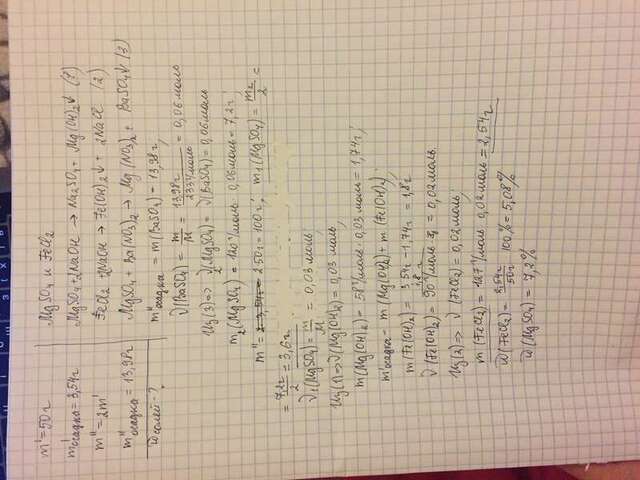 m' = 50г
m'осадка = 3,54г
m'' = 2m'
m''осадка = 13,98г
ω солей - ?
MgSO4 и FeCl2
MgSO4 + 2NaOH → Na2SO4 + Mg(OH)2↓ (1)
FeCl2 + 2NaOH → Fe(OH)2↓ + 2NaCl (2)
MgSO4 + Ba(NO3)2 → Mg(NO3)2 + BaSO4↓ (3)
m''осадка = m(BaSO4) = 13,98г;
ν(BaSO4) = m/M = 13,98г/233г/моль = 0,06моль
Из (3) => ν2(MgSO4) = ν(BaSO4) = 0,06моль
m2(MgSO4) = 120г/моль · 0,06моль = 7,2г;
m'' = 2·50г = 100г; m1(MgSO4) = m2/2 =
= 7,2г/2 = 3,6г.
ν1(MgSO4) = m/M = 0,03 моль;
Из (1) => ν(Mg(OH)2) = 0,03 моль;
m(Mg(OH)2) = 58г/моль · 0,03моль = 1,74г;
m'осадка = m(Mg(OH)2) + m(Fe(OH)2);
m(Fe(OH)2) = 3,54г - 1,74г = 1,8г;
ν(Fe(OH)2) = 1,8г/90г/моль = 0,02моль.
Из (2) => ν(FeCl2) = 0,02моль;
m(FeCl2) = 127г/моль · 0,02моль = 2,54г
ω(FeCl2) = 2,54г/50г · 100% = 5,08%
ω(MgSO4) = 7,2%